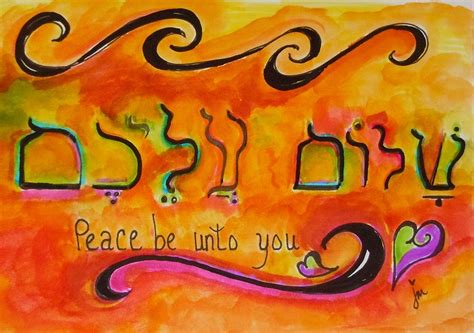 שָׁלוֹם עֲלֵיכֶם
Peace be unto you
jm